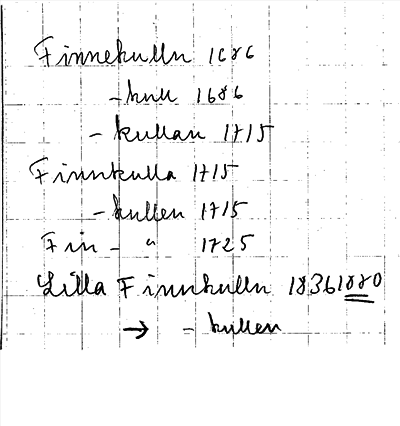 Finnekulln 1686
-kull 1686
- kullan 1715
Finnkulla 1715
- kullen 1715
Fin - " 1725
Lilla Finnkulln 1836 1880
→ - kullen